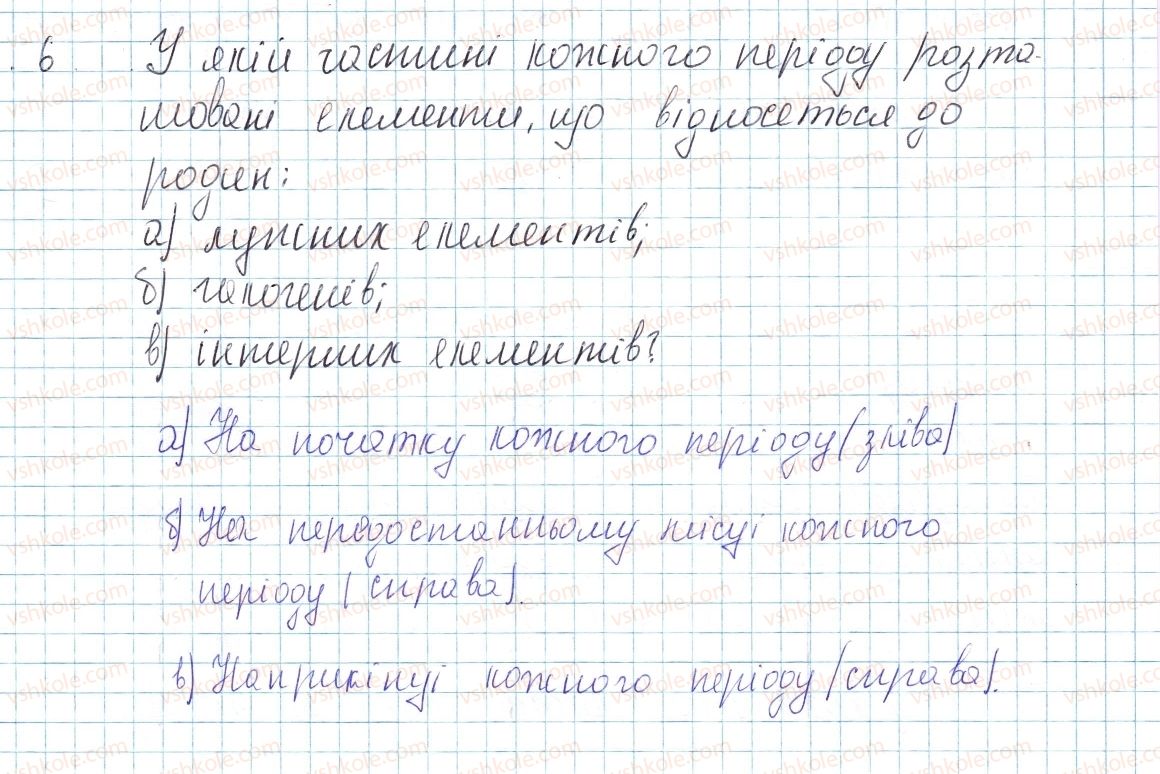 6 У якій частині кожного періоду розта-
шовані елементи, що відносеться до
родин:
а) лужних елементів;
б) галогенів;
в) інтерних елементів?
а) На початку кожного періоду (зліва)
б) На передостанньому місці кожного
періоду (справа).
в) Наприкінці кожного періоду (справа).